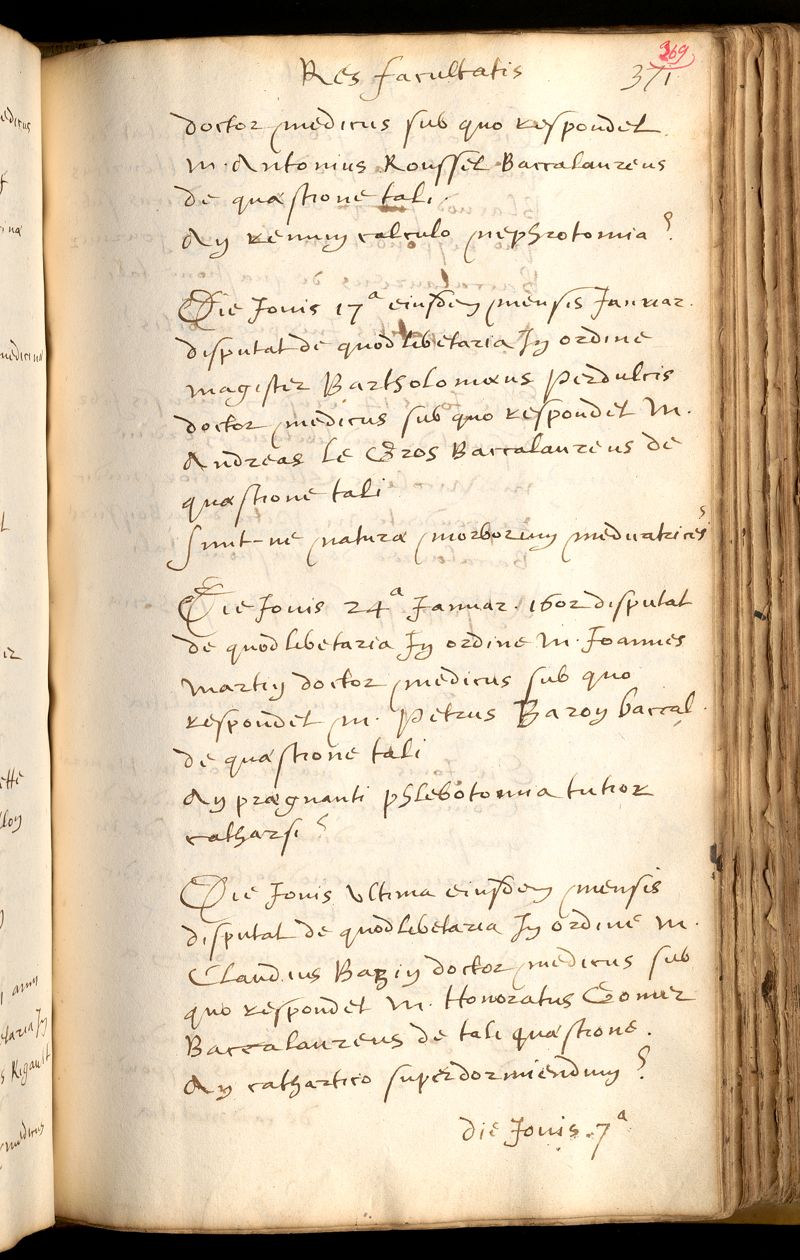 369
Res facultatis 371
doctor medicus sub quo respondet
M. Antonius Roussel Baccalaureus
de quæstione tali.
An renum calculo nephrotomia?
Die Jovis 17a eiusdem mensis Januar.
disputat de quodlibetaria In ordine
magister Bartholomæus Perdulcis
doctor medicus sub quo respondet M.
Andreas le Gros Baccalaureus de
quæstione tali
Sunt-ne naturæ morborum medicatrices?
Die Jovis 24a Januar. 1602 disputat
de quodlibetaria In ordine M. Joannes
Martin doctor medicus sub quo
respondet M. Petrus Baron baccal.
de quæstione tali
An prægnanti phlebotomia tutior
catharsi?
Die Jovis ultima eiusdem mensis
disputat de quodlibetaria In ordine M.
Claudius Bazin doctor medicus sub
quo respondet M. Honoratus
Baccalaureus de tali quæstione.
An cathartico superdormiendum?
die Jovis. 7a